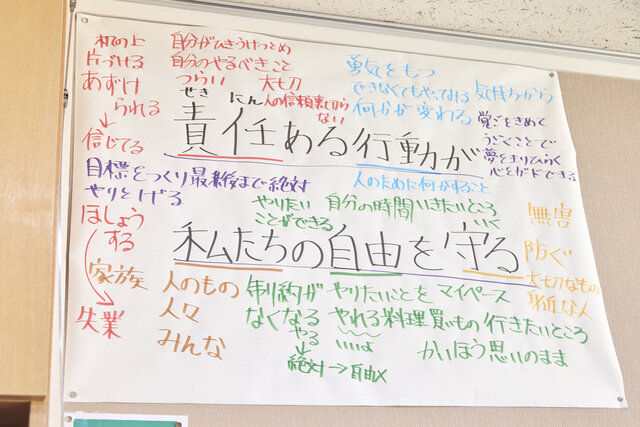 机の上
片づける
あずけ
られる
信じてる
自分がひきうけつとめ
自分のやるべきこと
つらい 大切
せき にん
人の信頼裏切ら
ない
勇気をもつ
できなくてもやってみる 気持ちから
何かが変わる
覚ごをきめて
うごくことで
夢をきりひらく
心をガードできる
責任ある行動が
目標をつくり最後まで絶対
やりとげる
人のために何かすること
ほしょう
する
失業
やりたい
ことができる
自分の時間
いきたいところ
いく
私たちの自由を守る
無害
防ぐ
大切なもの
身近な人
家族
人のもの
人々
みんな
制約が
なくなる
やる
絶対→自由×
やりたいことを マイペース
やれる 料理 買いもの 行きたいところ
いいよ
かいほう 思いのまま